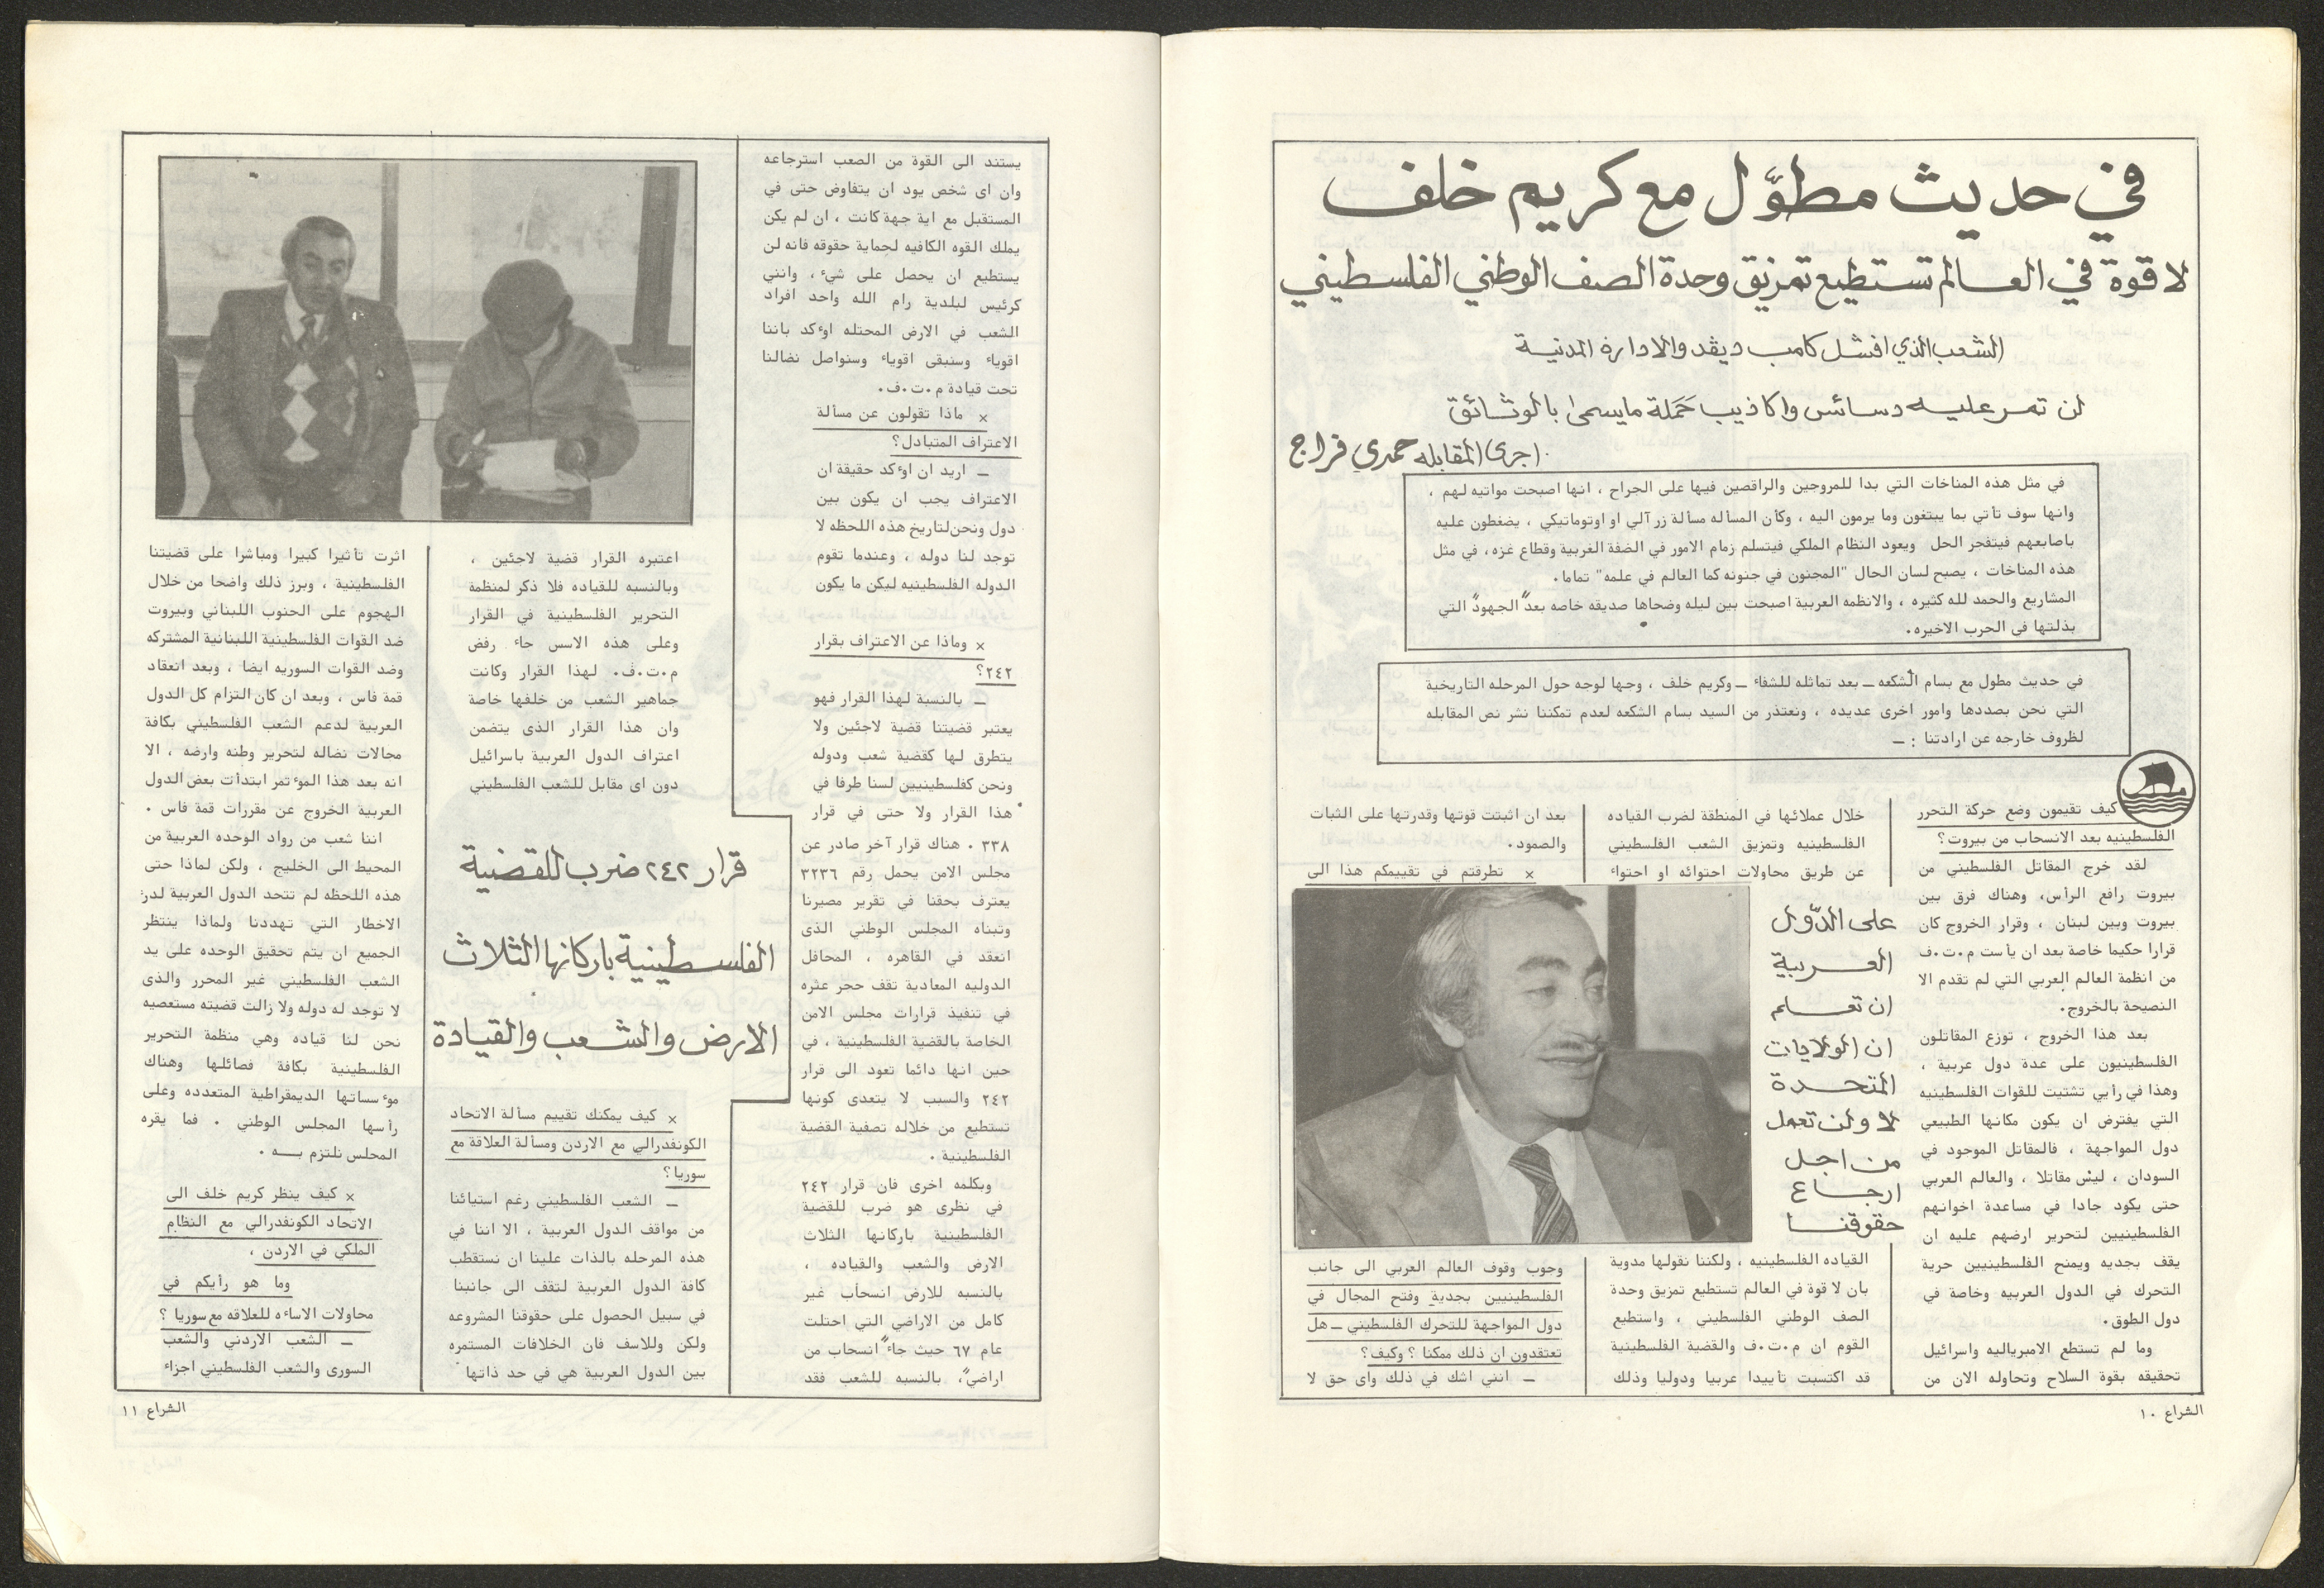 في حديث مطوّل مع كريم خلف
لا قوة في العالم تستطيع تمزيق وحدة الصف الوطني الفلسطيني
الشعب الذي افشل كامب ديفد والادارة المدنية
لن تمر عليه دسائس واكاذيب حملة مايسمى بالوثائق
اجرى المقابله حمدي فراج
في مثل هذه المناخات التي بدا للمروجين والراقصين فيها على الجراح ، انها اصبحت مواتيه لهم ،
وانها سوف تأتي بما يبتغون وما يرمون اليه ، وكأن المسأله مسألة زر آلي او اوتوماتيكي ، يضغطون عليه
باصابعهم فيتفجر الحل ويعود النظام الملكي فيتسلم زمام الامور في الضفة الغربية وقطاع غزه، في مثل
هذه المناخات ، يصبح لسان الحال "المجنون في جنونه كما العالم في علمه" تماما.
المشاريع والحمد لله كثيره ، والانظمه العربية اصبحت بين ليله وضحاها صديقه خاصه بعد "الجهود" التي
بذلتها في الحرب الاخيره.
في حديث مطول مع بسام الشكعه ــ بعد تماثله للشفاء ــ وكريم خلف ، وجها لوجه حول المرحله التاريخية
التي نحن بصددها وامور اخرى عديده ، ونعتذر من السيد بسام الشكعه لعدم تمكننا نشر نص المقابله
لظروف خارجه عن ارادتنا : ــ
كيف تقيمون وضع حركة التحرر
الفلسطينيه بعد الانسحاب من بيروت؟
لقد خرج المقاتل الفلسطيني من
بيروت رافع الرأس، وهناك فرق بين
بيروت وبين لبنان ، وقرار الخروج كان
قرارا حكيما خاصة بعد ان يأست م.ت.ف
من انظمة العالم العربي التي لم تقدم الا
النصيحة بالخروج.
بعد هذا الخروج ، توزع المقاتلون
الفلسطينيون على عدة دول عربية ،
وهذا في رأيي تشتيت للقوات الفلسطينيه
التي يفترض ان يكون مكانها الطبيعي
دول المواجهة ، فالمقاتل الموجود في
السودان ، ليس مقاتلا ، والعالم العربي
حتى يكود جادا في مساعدة اخوانهم
الفلسطينيين لتحرير ارضهم عليه ان
يقف بجديه ويمنح الفلسطينيين حرية
التحرك في الدول العربيه وخاصة في
دول الطوق.
وما لم تستطع الامبرياليه واسرائيل
تحقيقه بقوة السلاح وتحاوله الان من
خلال عملائها في المنطقة لضرب القياده
الفلسطينيه وتمزيق الشعب الفلسطيني
عن طريق محاولات احتوائه او احتواء
على الدّول
العربية
ان تعلم
ان الولايات
المتحدة
لا ولن تعمل
من اجل
ارجاع
حقوقنا
القياده الفلسطينيه ، ولكننا نقولها مدوية
بان لا قوة في العالم تستطيع تمزيق وحدة
الصف الوطني الفلسطيني ، واستطيع
القوم ان م.ت.ف والقضية الفلسطينية
قد اكتسبت تأييدا عربيا ودوليا وذلك
بعد ان اثبتت قوتها وقدرتها على الثبات
والصمود.
× تطرقتم في تقييمكم هذا الى
وجوب وقوف العالم العربي الى جانب
الفلسطينيين بجدية وفتح المجال في
دول المواجهة للتحرك الفلسطيني ــ هل
تعتقدون ان ذلك ممكنا ؟ وكيف؟
ــ انني اشك في ذلك واى حق لا
الشراع ١٠
يستند الى القوة من الصعب استرجاعه
وان اى شخص يود ان يتفاوض حتى في
المستقبل مع اية جهة كانت ، ان لم يكن
يملك القوه الكافيه لحماية حقوقه فانه لن
يستطيع ان يحصل على شيء ، وانني
كرئيس لبلدية رام الله واحد افراد
الشعب في الارض المحتله اوءكد باننا
اقوياء وسنبقى اقوياء وسنواصل نضالنا
تحت قيادة م.ت.ف.
× ماذا تقولون عن مسألة
الاعتراف المتبادل؟
ــ اريد ان اوءكد حقيقة ان
الاعتراف يجب ان يكون بين
دول ونحن لتاريخ هذه اللحظه لا
توجد لنا دوله ، وعندما تقوم
الدوله الفلسطينيه ليكن ما يكون
× وماذا عن الاعتراف بقرار
٢٤٢؟
ــ بالنسبة لهذا القرار فهو
يعتبر قضيتنا قضية لاجئين ولا
يتطرق لها كقضية شعب ودوله
ونحن كفلسطينيين لسنا طرفا في
هذا القرار ولا حتى في قرار
٣٣٨ . هناك قرار آخر صادر عن
مجلس الامن يحمل رقم ٣٢٣٦
يعترف بحقنا في تقرير مصيرنا
وتبناه المجلس الوطني الذى
انعقد في القاهره ، المحافل
الدوليه المعادية تقف حجر عثره
في تنفيذ قرارات مجلس الامن
الخاصة بالقضية الفلسطينية ، في
حين انها دائما تعود الى قرار
٢٤٢ والسبب لا يتعدى كونها
تستطيع من خلاله تصفية القضية
الفلسطينية .
وبكلمه اخرى فان قرار ٢٤٢
في نظرى هو ضرب للقضية
الفلسطينية باركانها الثلاث
الارض والشعب والقياده ،
بالنسبه للارض انسحاب غير
كامل من الاراضي التي احتلت
عام ٦٧ حيث جاء "انسحاب من
اراضي"، بالنسبه للشعب فقد
اعتبره القرار قضية لاجئين ،
وبالنسبه للقياده فلا ذكر لمنظمة
التحرير الفلسطينية في القرار
وعلى هذه الاسس جاء رفض
م.ت.ف. لهذا القرار وكانت
جماهير الشعب من خلفها خاصة
وان هذا القرار الذى يتضمن
اعتراف الدول العربية باسرائيل
دون اى مقابل للشعب الفلسطيني
قرار ٢٤٢ ضرب للقضية
الفلسطينية باركانها الثلاث
الارض والشعب والقيادة
× كيف يمكنك تقييم مسألة الاتحاد
الكونفدرالي مع الاردن ومسألة العلاقة مع
سوريا؟
ــ الشعب الفلسطيني رغم استيائنا
من مواقف الدول العربية ، الا اننا في
هذه المرحله بالذات علينا ان نستقطب
كافة الدول العربية لتقف الى جانبنا
في سبيل الحصول على حقوقنا المشروعه
ولكن وللاسف فان الخلافات المستمره
بين الدول العربية هي في حد ذاتها
اثرت تأثيرا كبيرا ومباشرا على قضيتنا
الفلسطينية ، وبرز ذلك واضحا من خلال
الهجوم على الجنوب اللبناني وبيروت
ضد القوات الفلسطينية اللبنانية المشتركه
وضد القوات السوريه ايضا ، وبعد انعقاد
قمة فاس ، وبعد ان كان التزام كل الدول
العربية لدعم الشعب الفلسطيني بكافة
مجالات نضاله لتحرير وطنه وارضه ، الا
انه بعد هذا الموءتمر ابتدأت بعض الدول
العربية الخروج عن مقررات قمة فاس .
اننا شعب من رواد الوحده العربية من
المحيط الى الخليج ، ولكن لماذا حتى
هذه اللحظه لم تتحد الدول العربية لدرء
الاخطار التي تهددنا ولماذا ينتظر
الجميع ان يتم تحقيق الوحده على يد
الشعب الفلسطيني غير المحرر والذى
لا توجد له دوله ولا زالت قضيته مستعصيه
نحن لنا قياده وهي منظمة التحرير
الفلسطينية بكافة فصائلها وهناك
موءسساتها الديمقراطية المتعدده وعلى
رأسها المجلس الوطني . فما يقره
المجلس نلتزم بــه .
× كيف ينظر كريم خلف الى
الاتحاد الكونفدرالي مع النظام
الملكي في الاردن ،
وما هو رأيكم في
محاولات الاساءه للعلاقه مع سوريا ؟
ــ الشعب الاردني والشعب
السورى والشعب الفلسطيني اجزاء
الشراع ١١